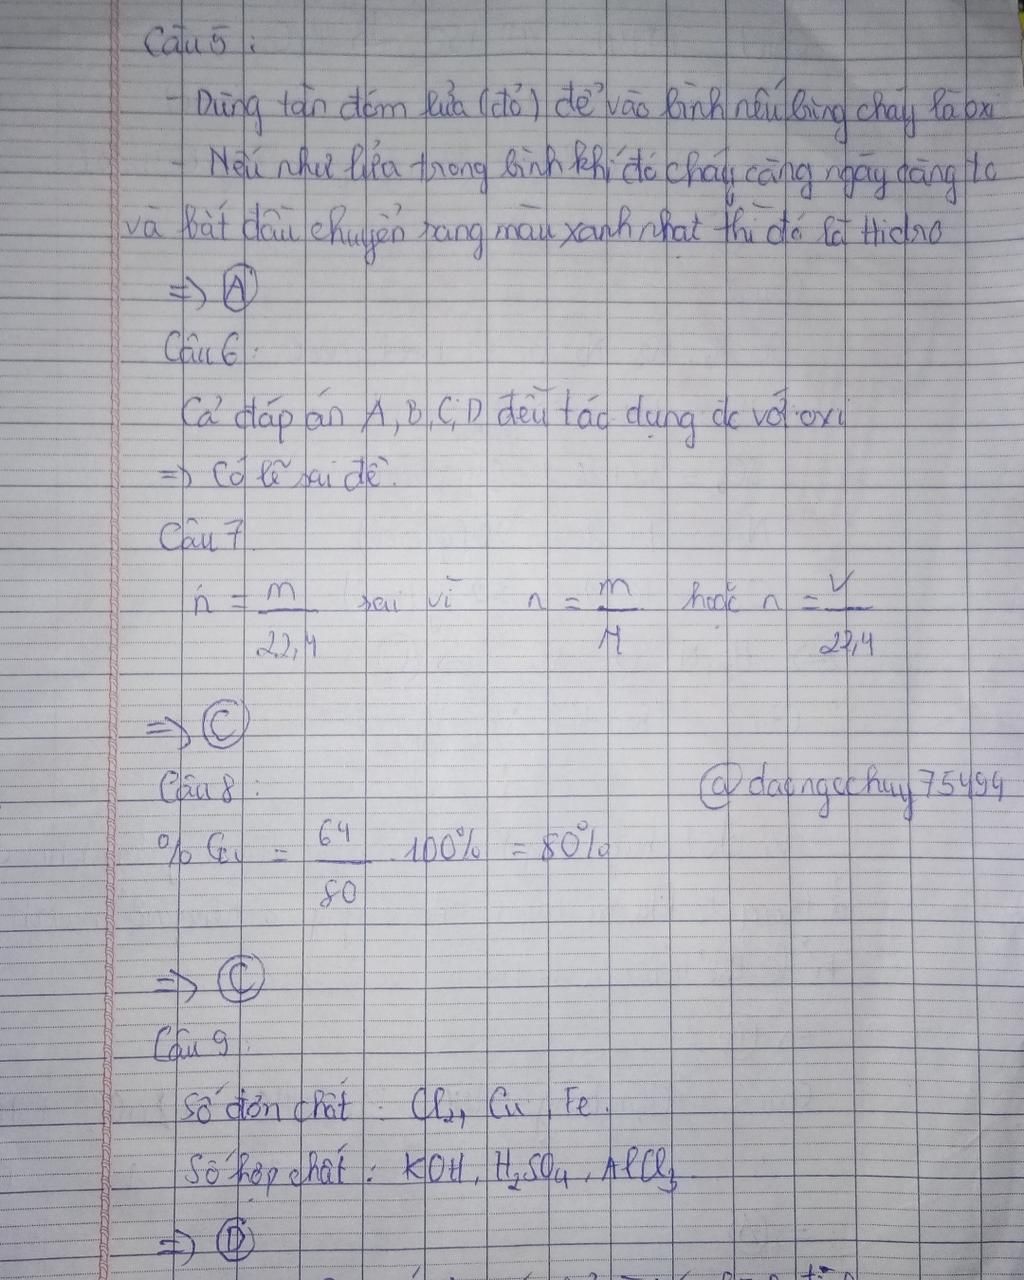 Câu 5 :
- Dùng tàn đóm lửa (đỏ) để vào bình nếu bùng cháy là oxi
- Nếu như lửa trong bình khí đó cháy càng ngày càng to
và bắt đầu chuyển sang màu xanh nhạt thì đó là Hidro
=> A
Câu 6 :
Cả đáp án A, B, C, D đều tác dụng đc với oxi
=> Có lẽ sai đề.
Câu 7
n = m/22,4 sai vì n = m/M hoặc n = V/22,4
=> C
Câu 8 :
@daongochuy75494
% Cu = 64/80 100% = 80%
=> C
Câu 9 :
Số đơn chất : Cl₂, Cu, Fe.
Số hợp chất : KOH, H₂SO₄, AlCl₃
=> D